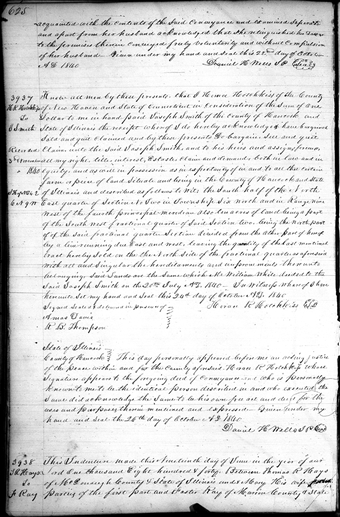 628
acquainted with the contents of the said Conveyance and examined separate
and apart from her husband acknowledged that she relinquished her dower
to the premises therein conveyed freely voluntarily and without compulsion
of her husband Given under my hand and seal this 22d day of October
A.D. 1840
Daniel H. Wells J.P.
3937
Know all men by these presents, that I Hiram Hotchkiss of the County
of New Haven and State of Connecticut in consideration of the Sum of One
To
Dollar to me in hand paid Joseph Smith of the County of Hancock and
Smith
State of Illinois the receipt whereof I do hereby acknowledge have bargained
Sold and quit Claimed and by these presents do bargain Sell and quit
Claim unto the said Joseph Smith and to his heirs and assigns forever
all my right title interest, Estate Claim and demand both in law and in
Equity and as well in possession as in expectancy of in and to all that certain
farm or piece of land Situate and being in the County of Hancock and State
of Illinois and described as follows to Wit the South half of the North
East quarter of Section No Two in Township Six North and in Range Nine
West of the fourth principal Meridian also the acres of land being a part
of the South West fractional quarter of Said Section two being the North part
of the Said fractional quarter Section divided from the other part of
by a line running due East and West leaving the quantity of the
hereby Sold on the North Side of the fractional quarter aforesaid
with all and Singular the hereditaments and appurtenances thereunto
belonging. Said lands are the Same which Wm White deeded to the
Said Joseph Smith on the 20th July A.D. 1840. In Witness whereof I have
hereunto Set my hand and Seal this 24th day of October A.D. 1840
Signed Sealed & delivered in presence of
Hiram R Hotchkiss
Amos Davis
R. B. Thompson
State of Illinois
County of Hancock
This day personally appeared before me an acting Justice
of the peace within and for the County aforesaid Hiram R Hotchkiss whose
Signature appears to the foregoing deed of Conveyance and who is personally
known to me to be the identical person described in and who executed the
Same did acknowledge the Same to be his own free act and deed for the
uses and purposes therein mentioned and expressed. Given under my
hand and Seal the 26th day of October A.D. 1840
Daniel H. Wells J.P.
3938
This Indenture made this Nineteenth day of June in the year of our
Lord One thousand Eight hundred & forty. Between Thomas R Hays
To
of McDonough County & State of Illinois and Mary His wife
Ray
parties of the first part and Ray of Marion County & State